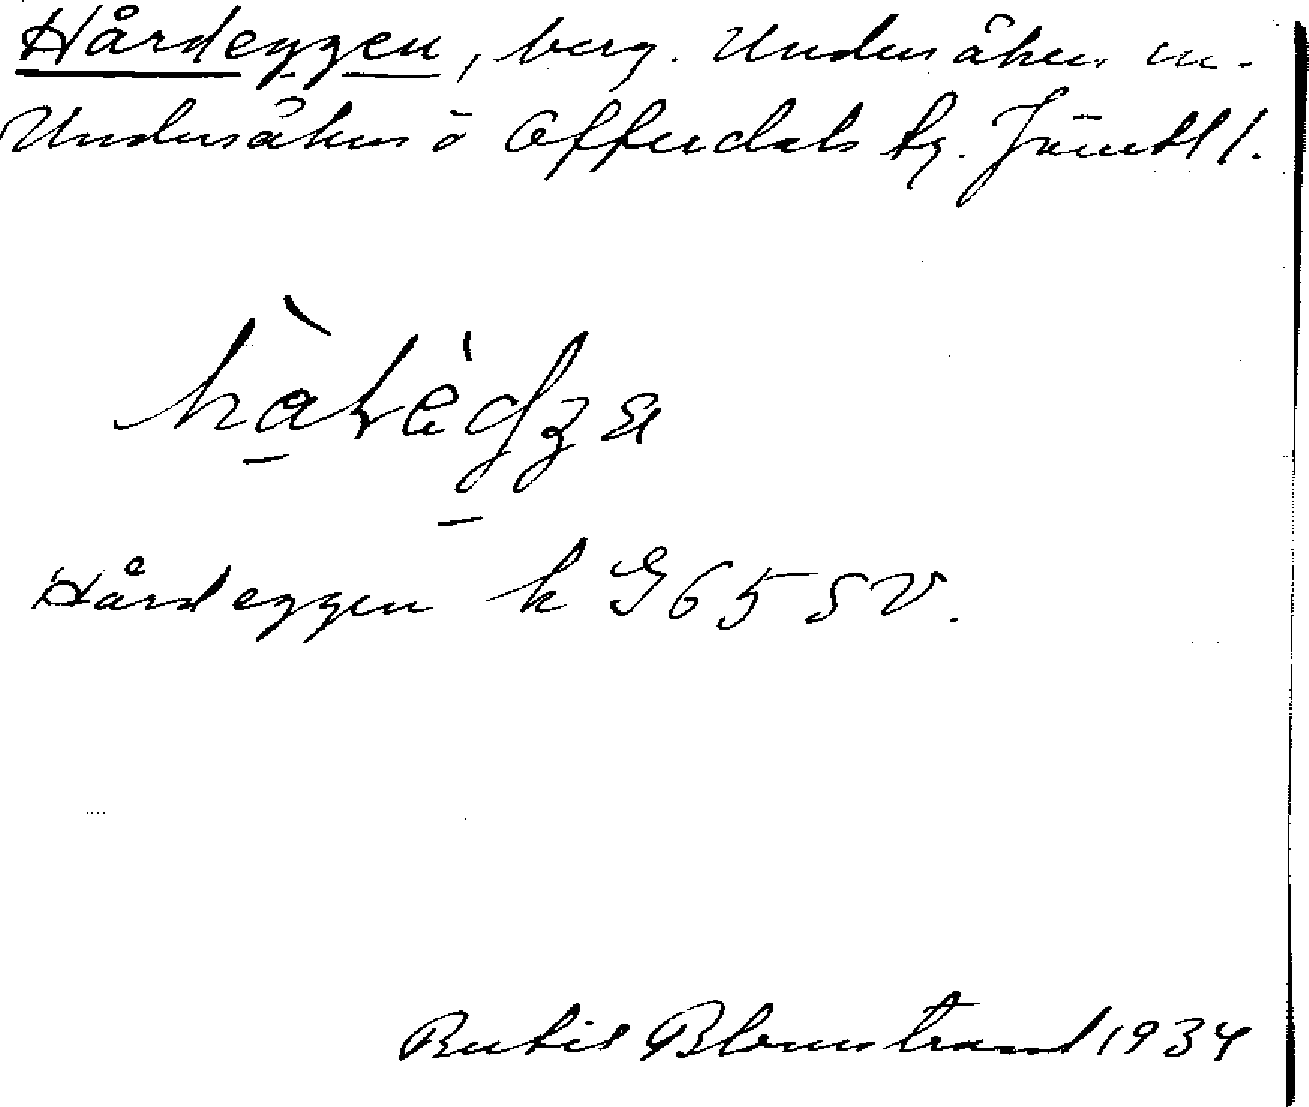 Hårdeggen, berg. Undersåkers sn.
Undersåkers o Offerdals tg. Jämtl l.
Hårdeggen k G 65 SV.
Bertil Blomstrand 1934